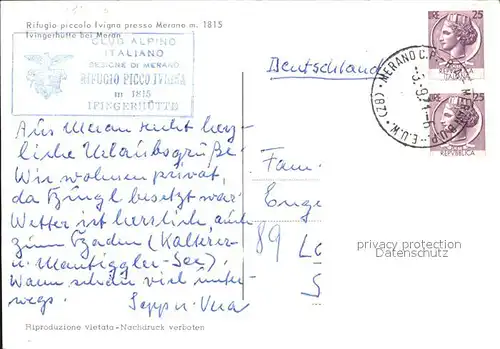 Rifugio piccolo Ivigna presso Merano m. 1815
Ivingerhütte bei Meran
CLUB ALPINO
ITALIANO
SEZIONE DI MERANO
RIFUGIO PICCO IVIGNA
m 1815
IFINGERHÜTTE
Aus Meran recht herz-
liche Urlaubsgrüße.
Wir wohnen privat,
da besetzt war.
Wetter ist herrlich auch
zum Baden (Kalterer-
u. Montiggler-See).
Wann schön viel unter-
wegs. Sepp u. Vera
Deutschland
Fam.
Enge
89
LIRE 25
LIRE 25
REPVBBLICA
MERANO C.P.
privacy protection
Datenschutz
Riproduzione vietata - Nachdruck verboten